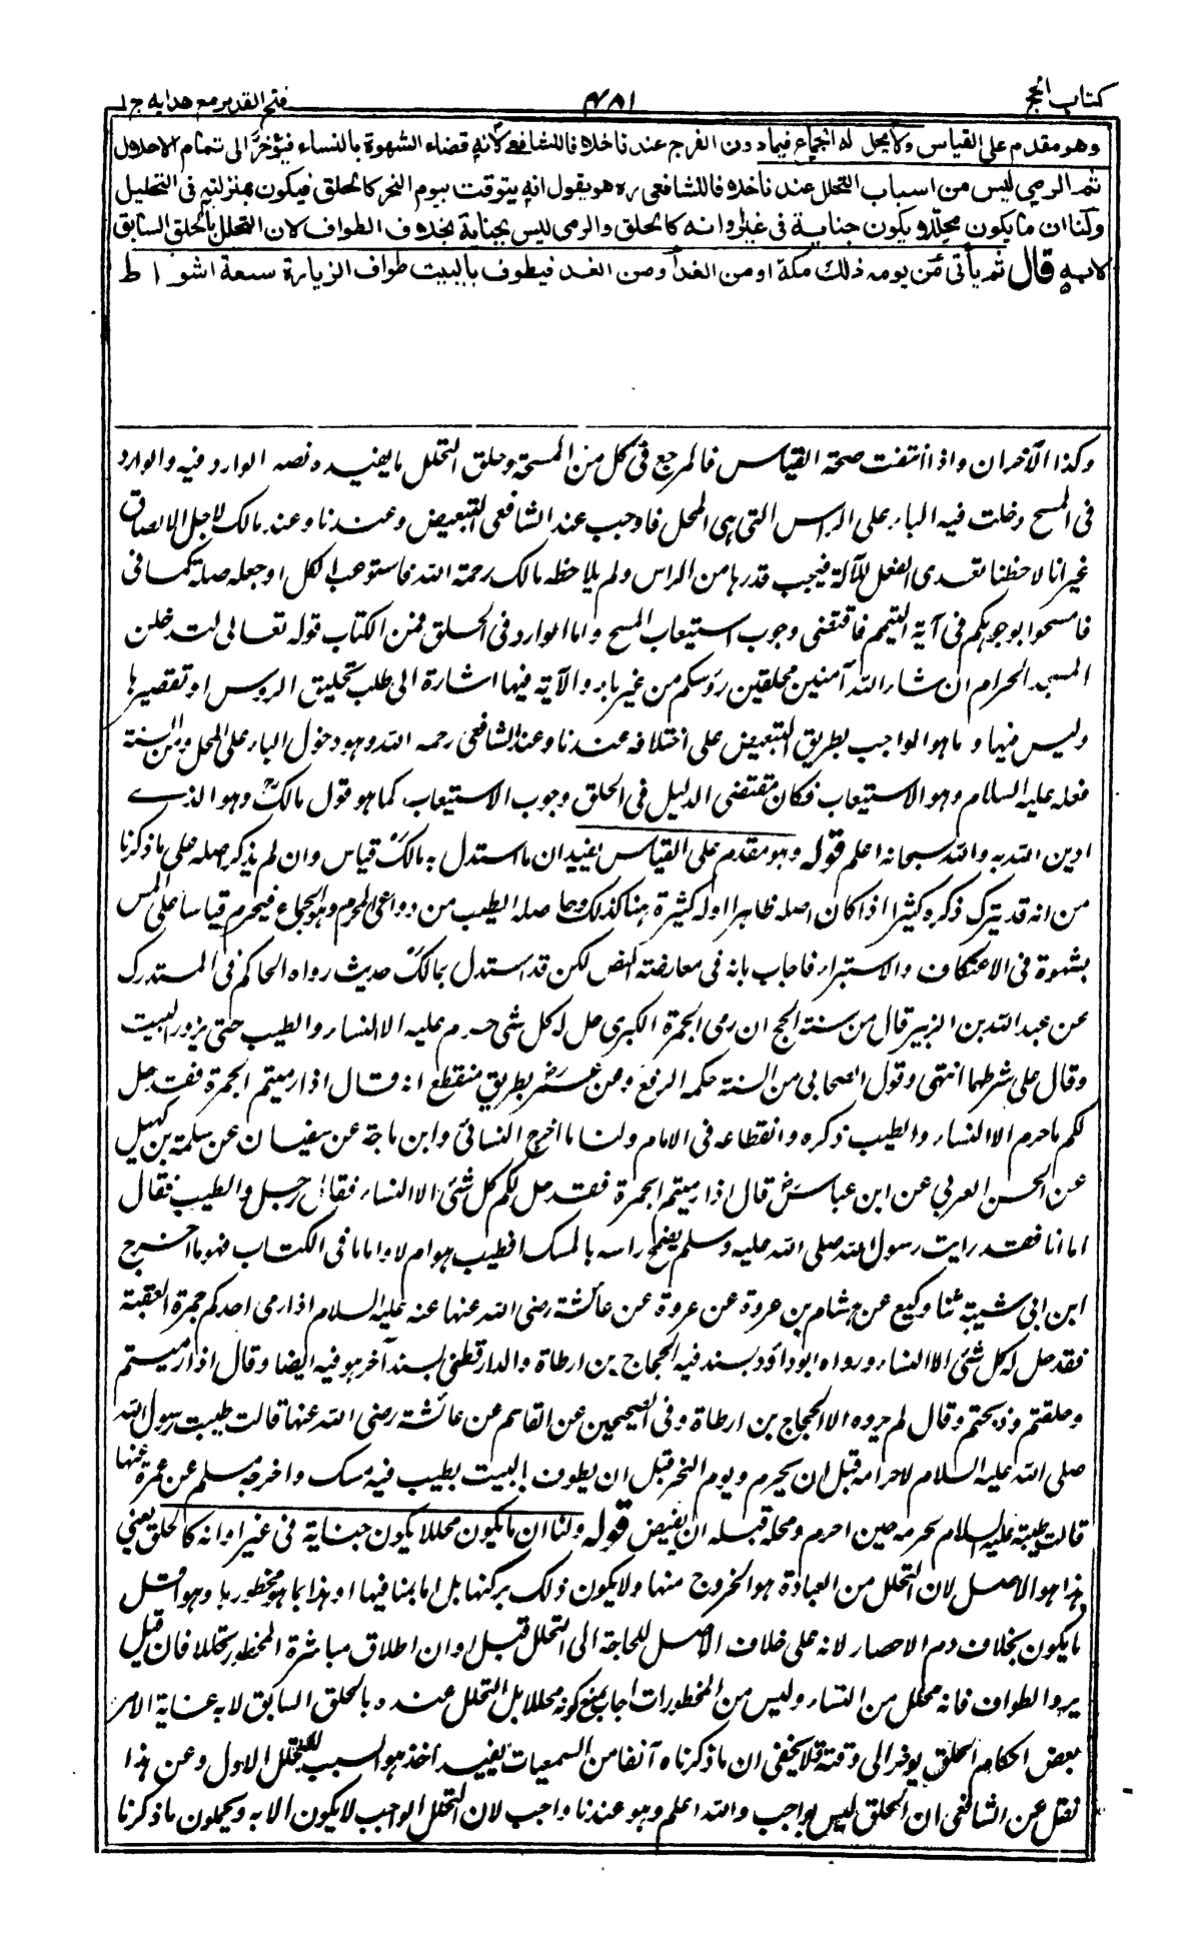 كتاب الحج
٤٨١
فتح القدير مع هدايه ج ١
وهو مقدم على القياس ولا يحل له الجماع فيما دون الفرج عندنا خلافا للشافعي لانه قضاء الشهوة بالنساء فيؤخر الى تمام الاحلال
ثم الرمي ليس من اسباب التحلل عندنا خلافا للشافعي ره هو يقول انه يتوقت بيوم النحر كالحلق فيكون بمنزلته في التحليل
ولنا ان ما يكون محللا يكون جناية في غير اوانه كالحلق والرمي ليس بجناية بخلاف الطواف لان التحلل بالحلق السابق
لا به قال ثم يأتي من يومه ذلك مكة او من الغد او من بعد الغد فيطوف بالبيت طواف الزيارة سبعة اشواط
وكذا الآخران واذا انتفت صحة القياس فالمرجع في كل من المسح وحلق التحلل ما يفيده نصه الوارد فيه والوارد
في المسح دخلت فيه الباء على الراس التي هي المحل فاوجب عند الشافعي التبعيض وعندنا وعند مالك لا بل الالصاق
غير انا لاحظنا تعدي الفعل للآلة فيجب قدرها من الراس ولم يلاحظه مالك رحمة الله فاستوعب الكل او جعله صلة كما في
فامسحوا بوجوهكم في آية التيمم فاقتضى وجوب استيعاب المسح واما الوارد في الحلق فمن الكتاب قوله تعالى لتدخلن
المسجد الحرام ان شاء الله آمنين محلقين رؤسكم من غير باء والآية فيها اشارة الى طلب تحليق الرؤس او تقصيرها
وليس فيها ما هو الواجب بطريق التبعيض على اختلافه عندنا وعند الشافعي رحمه الله وهو دخول الباء على المحل ومن السنة
فعله عليه السلام وهو الاستيعاب فكان مقتضى الدليل في الحلق وجوب الاستيعاب كما هو قول مالك وهو الذي
ادين الله به والله سبحانه اعلم قوله وهو مقدم على القياس يفيد ان ما استدل به مالك قياس وان لم يذكر اصله على ما ذكرنا
من انه قد يترك ذكره كثيرا اذا كان اصله ظاهرا او له كثيرة هنا كذلك وحاصله الطيب من دواعي المحرم وهو الجماع فيحرم قياسا على المس
بشهوة في الاعتكاف والاستبراء فاجاب بانه في معارضة النص لكن قد استدل لمالك بحديث رواه الحاكم في المستدرك
عن عبد الله بن الزبير قال من سنة الحج ان رمى الجمرة الكبرى حل له كل شئ حرم عليه الا النساء والطيب حتى يزور البيت
وقال على شرطهما انتهى وقول الصحابي من السنة حكمه الرفع وعن عمر بطريق منقطع انه قال اذا رميتم الجمرة فقد حل
لكم ما حرم الا النساء والطيب ذكره وانقطاعه في الامام ولنا ما اخرج النسائي وابن ماجة عن سفيان عن سلمة بن كهيل
عن الحسن العرني عن ابن عباس قال اذا رميتم الجمرة فقد حل لكم كل شئ الا النساء فقال رجل والطيب فقال
اما انا فقد رايت رسول الله صلى الله عليه وسلم يضمخ راسه بالمسك افطيب هو ام لا واما ما في الكتاب فهو ما اخرج
ابن ابي شيبة ثنا وكيع عن هشام بن عروة عن عروة عن عائشة رضى الله عنها عنه عليه السلام اذا رمى احدكم جمرة العقبة
فقد حل له كل شئ الا النساء ورواه ابو داؤد بسند فيه الحجاج بن ارطاة والدارقطني بسند آخر هو فيه ايضا وقال اذا رميتم
وحلقتم وذبحتم وقال لم يروه الا الحجاج بن ارطاة وفي الصحيحين عن القاسم عن عائشة رضى الله عنها قالت طيبت رسول الله
صلى الله عليه السلام لاحرامه قبل ان يحرم ويوم النحر قبل ان يطوف بالبيت بطيب فيه مسك واخرجه مسلم عن عمرة عنها
قالت طيبته عليه السلام لحرمه حين احرم ولحله قبل ان يفيض قوله ولنا ان ما يكون محللا يكون جناية في غير اوانه كالحلق يعني
هذا هو الاصل لان التحلل من العبادة هو الخروج منها ولا يكون ذلك بركنها بل اما بمنافيها او هذا بما هو محظورها وهو اقل
ما يكون بخلاف دم الاحصار لانه على خلاف الاصل للحاجة الى التحلل قبل اوان اطلاق مباشرة المحظور تحللا فان قيل
يرد الطواف فانه محلل من النساء وليس من المحظورات اجاب بمنع كونه محللا بل التحلل عنده بالحلق السابق لا به غاية الامر
بعض احكام الحلق يؤخر الى وقته فلا يخفى ان ما ذكرناه آنفا من السمعيات يفيد اخذ هو السبب للتحلل الاول وعن هذا
نقل عن الشافعي ان الحلق ليس بواجب والله اعلم وهو عندنا واجب لان التحلل الواجب لا يكون الا به ويحملون ما ذكرنا